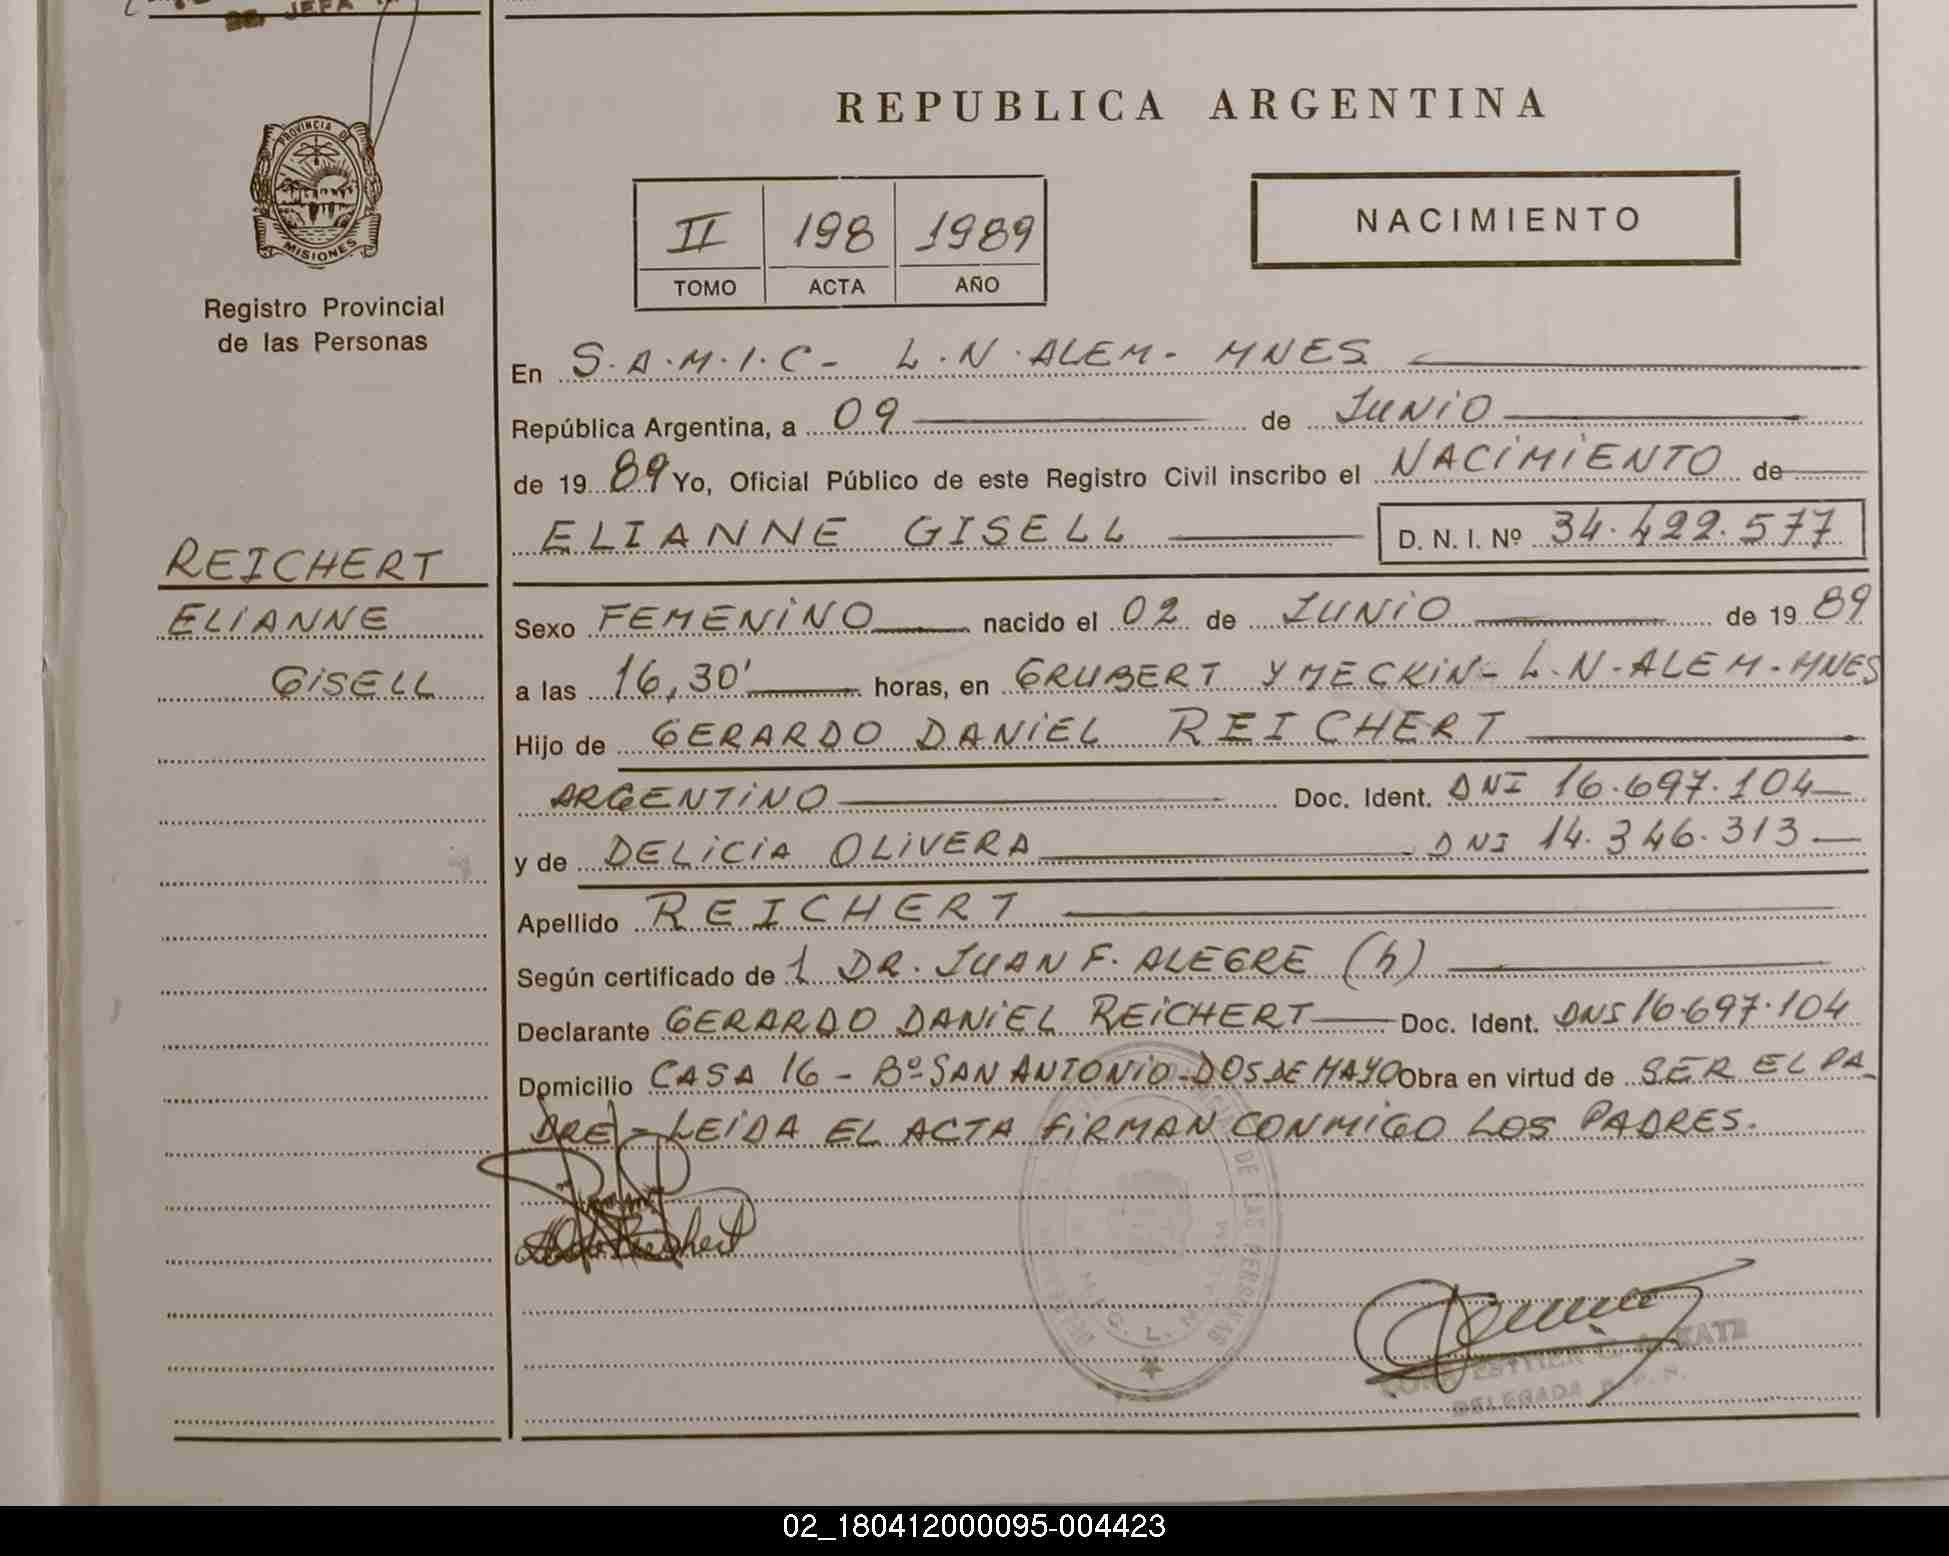 JEFA
REPUBLICA ARGENTINA
PROVINCIA DE
MISIONES
II 198 1989
TOMO ACTA AÑO
NACIMIENTO
Registro Provincial
de las Personas
En S.A.M.I.C- L.N.ALEM- MNES
República Argentina, a 09 de JUNIO
de 1989 Yo, Oficial Público de este Registro Civil inscribo el NACIMIENTO de
ELIANNE GISELL D. N. I. Nº 34.422.577
REICHERT
ELIANNE
GISELL
Sexo FEMENINO nacido el 02 de JUNIO de 1989
a las 16,30' horas, en GRUBERT Y MECKIN- L.N-ALEM-MNES
Hijo de GERARDO DANIEL REICHERT
ARGENTINO Doc. Ident. DNI 16.697.104
y de DELICIA OLIVERA DNI 14.346.313
Apellido REICHERT
Según certificado de 1 DR. JUAN F. ALEGRE (h)
Declarante GERARDO DANIEL REICHERT Doc. Ident. DNI 16.697.104
Domicilio CASA 16 - Bº SAN ANTONIO-DOS DE MAYO Obra en virtud de SER EL PA-
DRE - LEIDA EL ACTA FIRMAN CONMIGO LOS PADRES.
DE LAS PERSONAS
ESTHER KATZ
DELEGADA R. P. P.
02_180412000095-004423